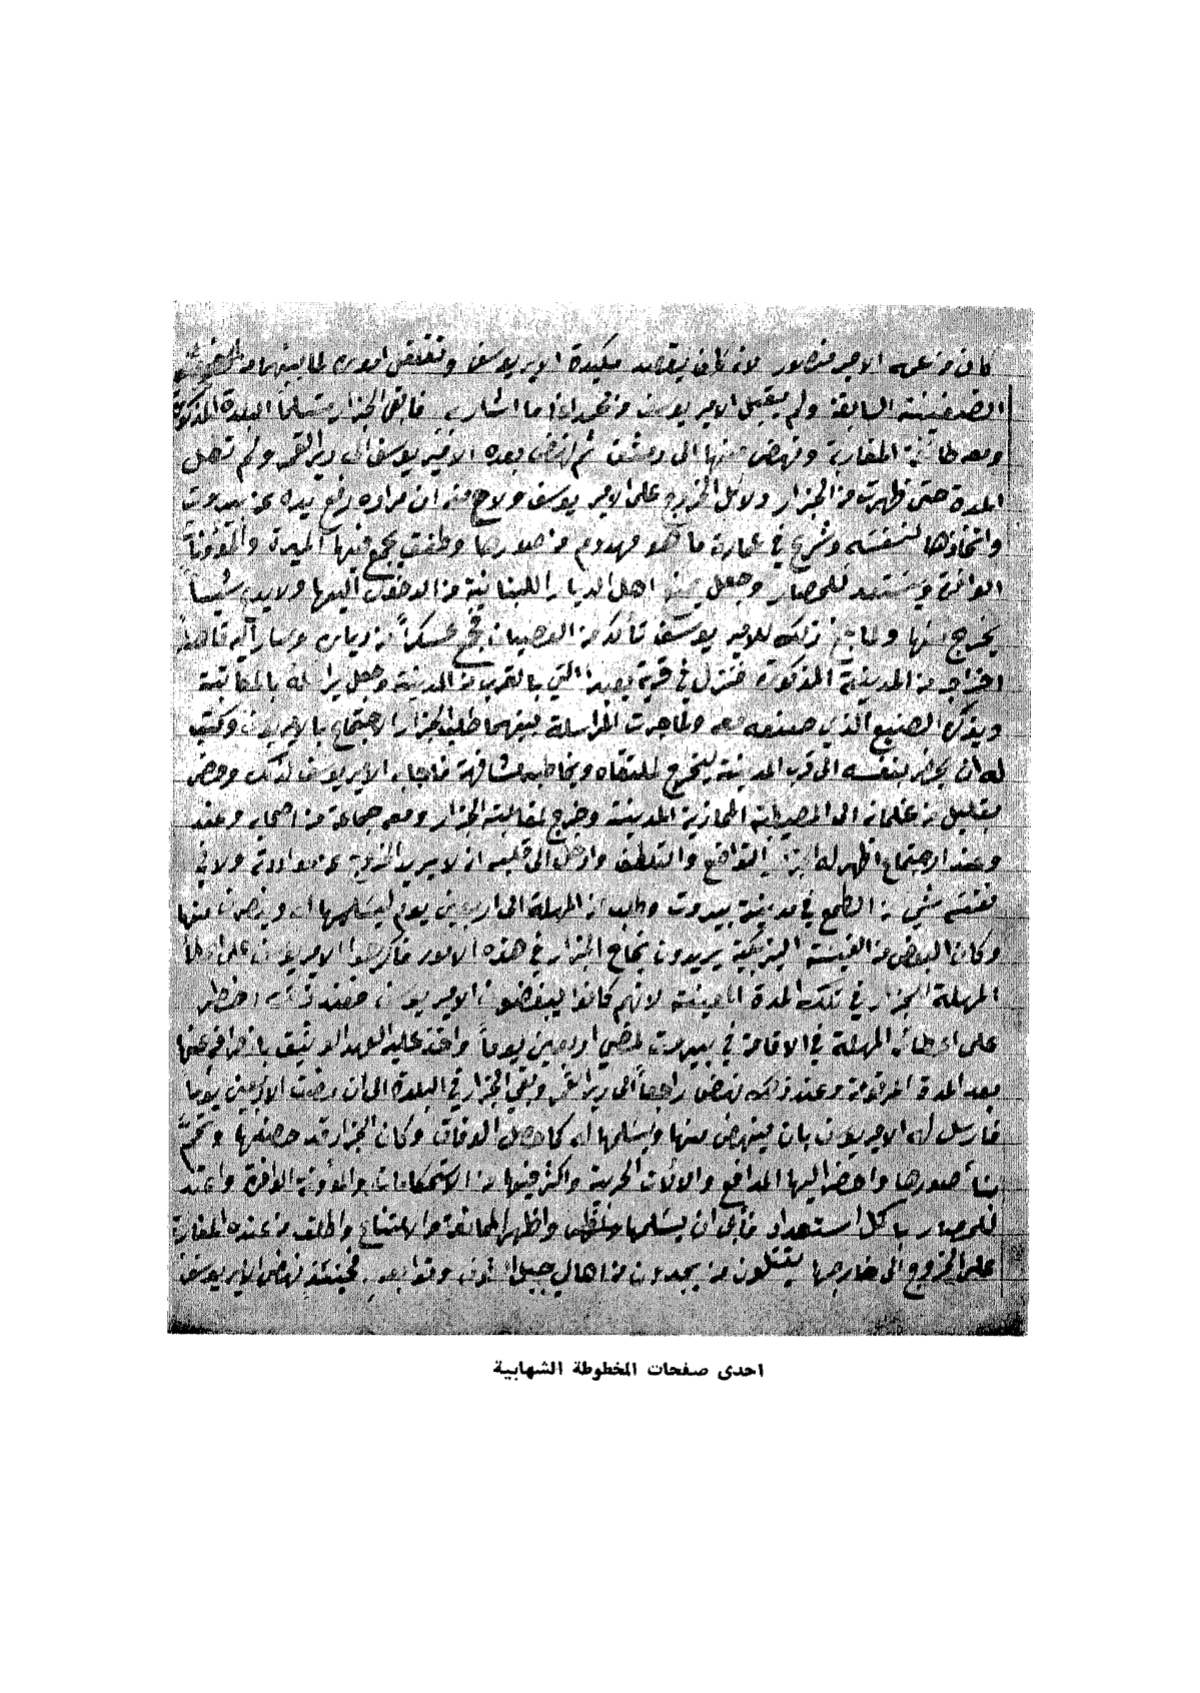 كان من عمه الامير منصور لانه كان يقصد مكيدة الامير يوسف وتنقض اموره لما بينهما من
الضغينة السابقة ولم يقبل الامير يوسف من اما اشار به فابقى الجزار متسلماً البلدة المذكورة
ومعه طائفة المغاربة ونهض منها الى دمشق ثم نهض بعده الامير يوسف الى دير القمر ولم تطل
المدة حتى ظهرت من الجزار دلائل الخروج على الامير يوسف ولاح منه ان مراده رفع يده عن بيروت
واتخاذها لنفسه وشرع في عمارة ما هو مهدوم من صورها وطفق يجمع فيها الميرة والمؤونة
الوافرة ويستعد للحصار وجعل يمنع اهل الديار اللبنانية من الدخول اليها ولا يدع شيئاً
يخرج منها ولما بلغ ذلك للامير يوسف تأكد منه العصيان فجمع عسكراً من دياره وسار اليه قاصداً
اخراجه من المدينة المذكورة فنزل في قرية بعبدا التي بالقرب من المدينة وجعل يراسله بالمعاتبة
ويذكره الصنيع الذي صنعه معه ولما جرت المراسلة بينهما طلب الجزار الاجتماع بالامير يوسف وكتب
له ان يحضر بنفسه الى قرب المدينة ليخرج لملتقاه ويخاطبه مشافهة فاجابه الامير يوسف لذلك وحضر
بقليل من غلمانه الى المصيطبة المحاذية المدينة وخرج لمقابلته الجزار ومعه جماعة من اصحابه وعند
وعند الاجتماع اظهر له الجزار التواضع والتلطف وادخل الى قلبه انه لا يريد الخروج عن موادته ولا في
نفسه شيء من الطمع في مدينة بيروت وطلب منه المهلة الى اربعين يوم ليسلمها له وينهض منها
وكان البعض من الفئة اليزبكية يريدون نجاح الجزار في هذه الامور فاكرهوا الامير يوسف على اعطا
المهلة للجزار في تلك المدة المعينة لانهم كانوا يبغضون الامير يوسف فعند ذلك اضطر
على اعطائه المهلة في الاقامة في بيروت لمضي اربعين يوماً واخذ عليه العهد الوثيق بانصرافه عنها
بعد المدة المرقومة وعند ذلك نهض راجعاً الى دير القمر وبقي الجزار في البلدة الى ان مضت الاربعين يوما
فارسل له الامير يوسف بان ينهض منها ويسلمها له كما حصل الوفاق وكان الجزار قد حصنها وتمم
بناء صورها واحضر اليها المدافع والالات الحربية واكثر فيها من الاستحكامات والمؤونة الوافرة واعتد
للحصار باكمل استعداد فأبى ان يسلمها واظهر الممانعة والامتناع واطلق من عنده المغاربة
على الخروج الى خارجها يقتلون من يجدون من اهالي جبل الشوف وتوابعه فحينئذٍ نهض الامير يوسف
احدى صفحات المخطوطة الشهابية